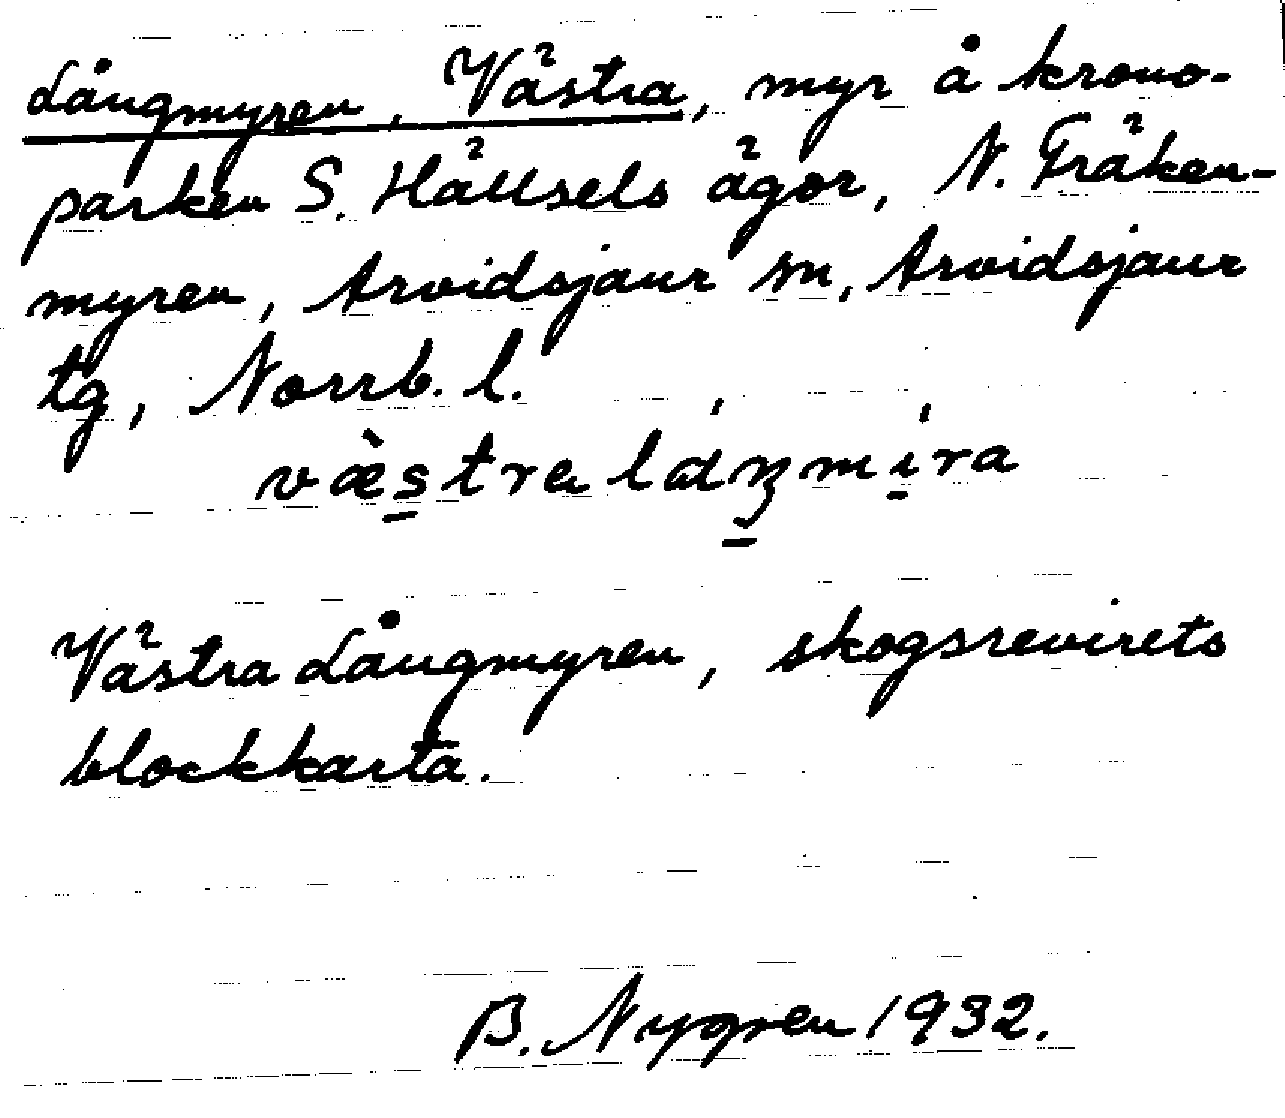 Långmyren, Västra, myr å krono-
parken S. Hällsels ägor, N. Fräken-
myren, Arvidsjaur sn, Arvidsjaur
tg, Norrb. l.
Västra Långmyren, skogsrevirets
blockkarta.
B. Nygren 1932.